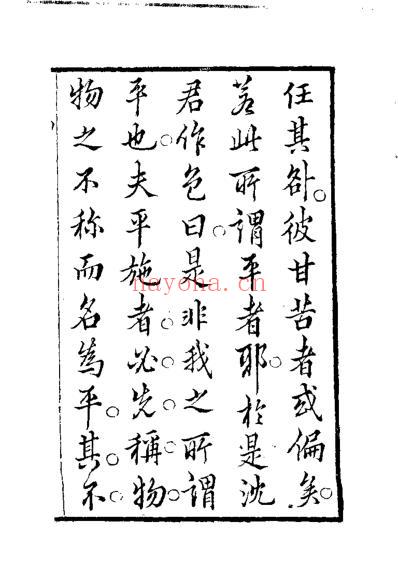 任其彼甘苦者或偏矣
若此所謂平者耶於是沈
君作色曰是非我之所謂
平也夫平施者必先稱物
物之不称而名為平其不
nayona.cn